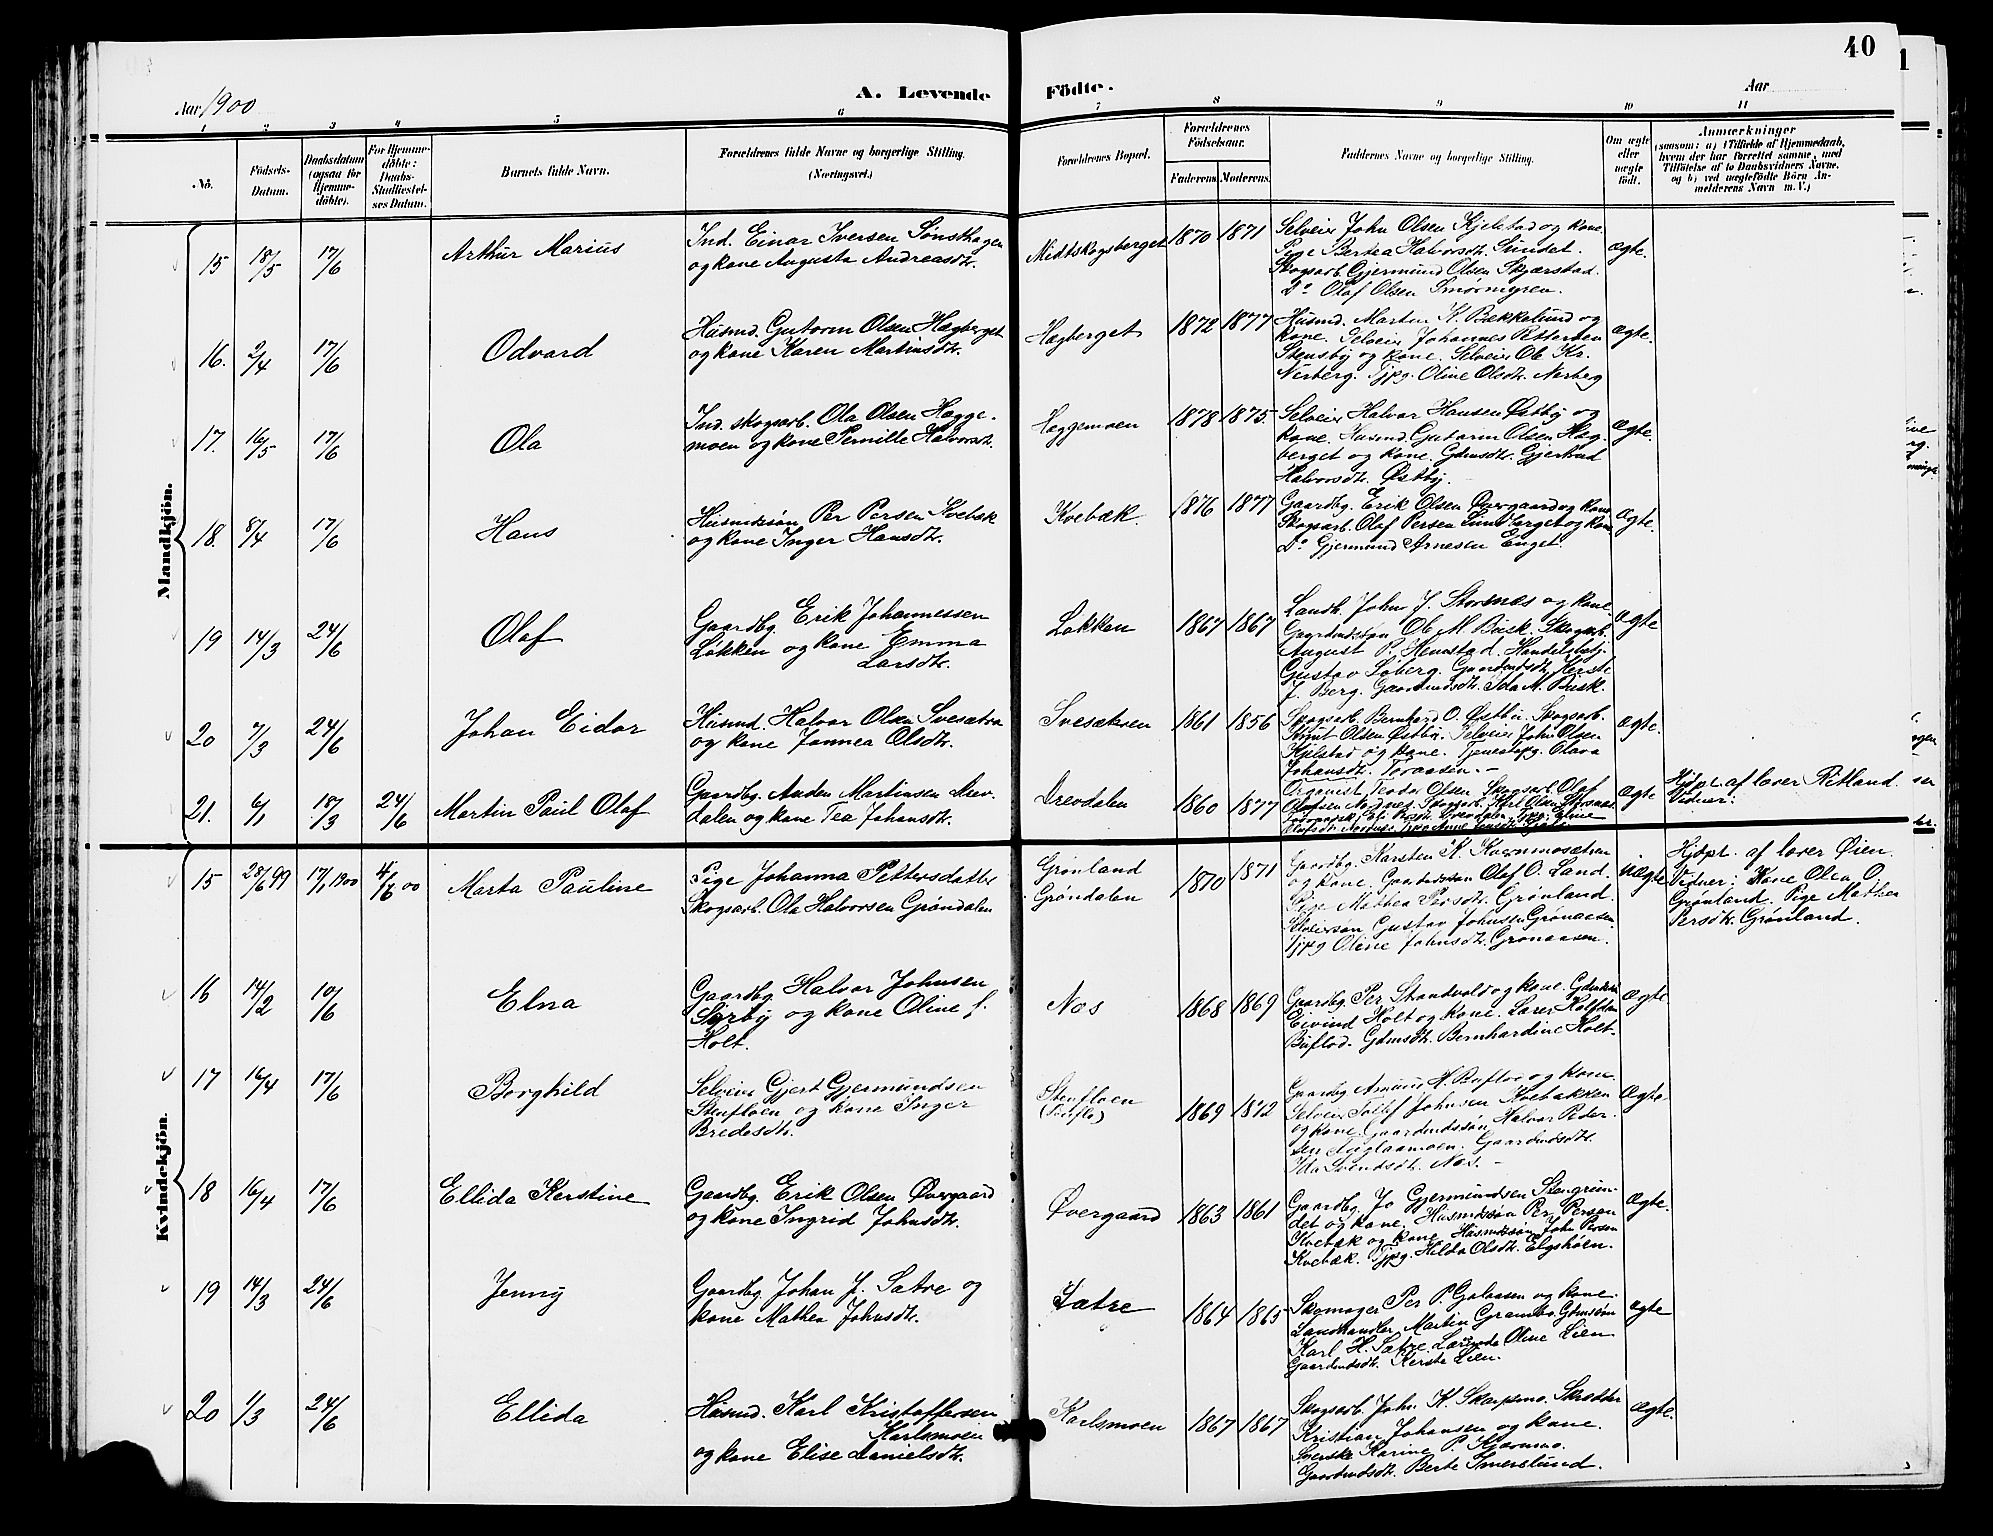 40
Aar 1900
A. Levende
Födte.
Aar
1 2 3 4 5 6 7 8 9 10 11
No.
Födsels-Datum.
Daabsdatum (ogsaa for Hjemmedöbte).
For Hjemmedöbte: Daabs-Stadfæstelses Datum.
Barnets fulde Navn.
Forældrenes fulde Navne og borgerlige Stilling. (Næringsvei.)
Forældrenes Bopæl.
Forældrenes Födselsaar.
Faderens. Moderens.
Faddernes Navne og borgerlige Stilling.
Om ægte eller uægte födt.
Anmærkninger (saasom: a) i Tilfælde af Hjemmedaab, hvem der har forrettet samme, med Tilföielse af to Daabsvidners Navne. og b) ved uægtefödte Börn Anmelderens Navn m. V.)
Mandkjön.
15 18/5 17/6 Arthur Marius
Ind. Einar Iversen Sønsthagen
og kone Augusta Andreasdtr.
Midtskogsberget 1870 1871
Selveier John Olsen Kjelstad og kone.
Pige Bertea Halvorsdtr. Sundet.
Skogsarb. Gjermund Olsen Skjærstad.
Do Olaf Olsen Smørmyren.
ægte.
16. 2/4 17/6 Odvard
Husmd. Gutorm Olsen Hægberget
og kone Karen Martinsdtr.
Hægberget 1872 1877
Husmd. Martin K. Bækkelund og
kone. Selveier Johannes Pettersen
Stensby og kone. Selveier Ole Kr.
Nerberg. Tjpg. Oline Olsdtr. Nerberg
ægte.
17. 16/5 17/6 Ola
Ind. skogsarb. Ola Olsen Hægge-
moen og kone Pernille Halvorsdtr.
Hæggemoen 1878 1875.
Selveier Halvor Hansen Østby og
kone. Husmd. Gutorm Olsen Hæg-
berget og kone. Gdmsdtr. Gjertrud
Halvorsdtr. Østby.
ægte.
18. 8/4 17/6 Hans
Husmdssøn Per Persen Kvebæk
og kone Inger Hansdtr.
Kvebæk. 1876 1877
Gaardbg. Erik Olsen Øvergaard og kone
Skogsarb. Olaf Persen Lundberget og kone
Do Gjermund Arnesen Enget.
ægte.
19 14/3 24/6 Olaf
Gaardbg. Erik Johannessen
Løkken og kone Emma
Larsdtr.
Løkken 1867 1867
Landh. John J. Stornes og kone.
Gaardmdssøn Ole M. Busk. Skogsarb.
August P. Hemstad. Handelsbetj.
Gustav Søberg. Gaardmdsdtr. Kersti
J. Berg. Gaardmdsdtr. Ida M. Busk.
ægte
20 7/3 24/6 Johan Eidar
Husmd. Halvor Olsen Svesætra
og kone Jonnea Olsdtr.
Svesæteren 1861 1856
Skogsarb. Bernhard O. Østby. Skogsarb.
Knut Olsen Østby. Selveier John Olsen
Kjelstad og kone. Tjenestepg. Olava
Johansdtr. Toraasen.
ægte.
21. 6/1 18/3 24/6 Martin Paul Olaf
Gaardbg. Anden Martinsen Drev-
dalen og kone Tea Johansdtr.
Drevdalen 1860 1877
Organist Teodor Olsen Skogsarb. Olaf
Olafsen Nordnes. Skogsarb. Karl Olsen
ægte
Hjdpt. af lærer Ritland.
Vidner:
Kvindekjön.
15 28/6 99 17/1 1900 4/6 00 Marta Pauline
Pige Johanna Pettersdatter
Skogsarb. Ola Halvorsen Grøndalen
Grønland
Grøndalen 1870 1871
Gaardbg. Karsten K. Kvernmosætren
og kone. Gaardmdssøn Olaf O. Land.
Pige Mathea Persdtr. Grønland.
Selveiersøn Gustav Johnsen Grønaasen
Tjpg Oline Johnsdtr. Grønaasen.
uægte
Hjdpt. af lærer Øien.
Vidner: Kone Olea O.
Grønland. Pige Mathea
Persdtr. Grønland.
16 14/2 10/6 Elna
Gaardbg. Halvor Johnsen
Sørby og kone Oline f.
Holt.
Nos 1868 1869
Gaardbg. Per Strandvold og kone.
Eivind Holt og kone. Lærer Halfdan
Buflod. Gdmsdtr. Bernhardine Holt.
Ægte.
17 16/4 17/6 Borghild
Selveier Gjert Gjermundsen
Stenfloen og kone Inger
Bredesdtr.
Stenfloen
1869 1872
Gaardbg. H. Buflod og kone.
Selveier Tollef Johnsen Kvebakken
og kone. Gaardmdssøn Halvor Peder-
sen Gaardmdsdtr.
Ida Svendsdtr. Nos.
Ægte.
18 16/4 17/6 Ellida Kerstine
Gaardbg. Erik Olsen Øvergaard
og kone Ingrid Johnsdtr.
Øvergaard 1863 1861
Gaardbg. Jo Gjermundsen Stengrun-
det og kone. Husmdssøn Per Persen
Kvebæk og kone. Husmdssøn John Persen
Kvebæk. Tjpg. Hilda Olsdtr. Elgshøen.
Ægte.
19 14/3 24/6 Jenny
Gaardbg Johan J. Sætre og
kone Mathea Johnsdtr.
Sætre 1864 1865
Skomager Per P. Galaasen og kone.
Landhandler Martin Grambo. Gdmsøn
Karl H. Sætre. Lærerinde Oline Lien
Gaardmdsdtr. Kersta Lien.
ægte
20 1/3 24/6 Ellida
Husmd. Karl Kristoffersen
Karlsmoen
og kone Elise Danielsdtr.
Karlsmoen 1867 1867
Skogsarb. John K. Skarpmo. Skrædder
Kristian Johansen og kone.
Svenske Karine P. Kjærnmo.
Gaardmdsdtr. Berte Smerslund.
Ægte.